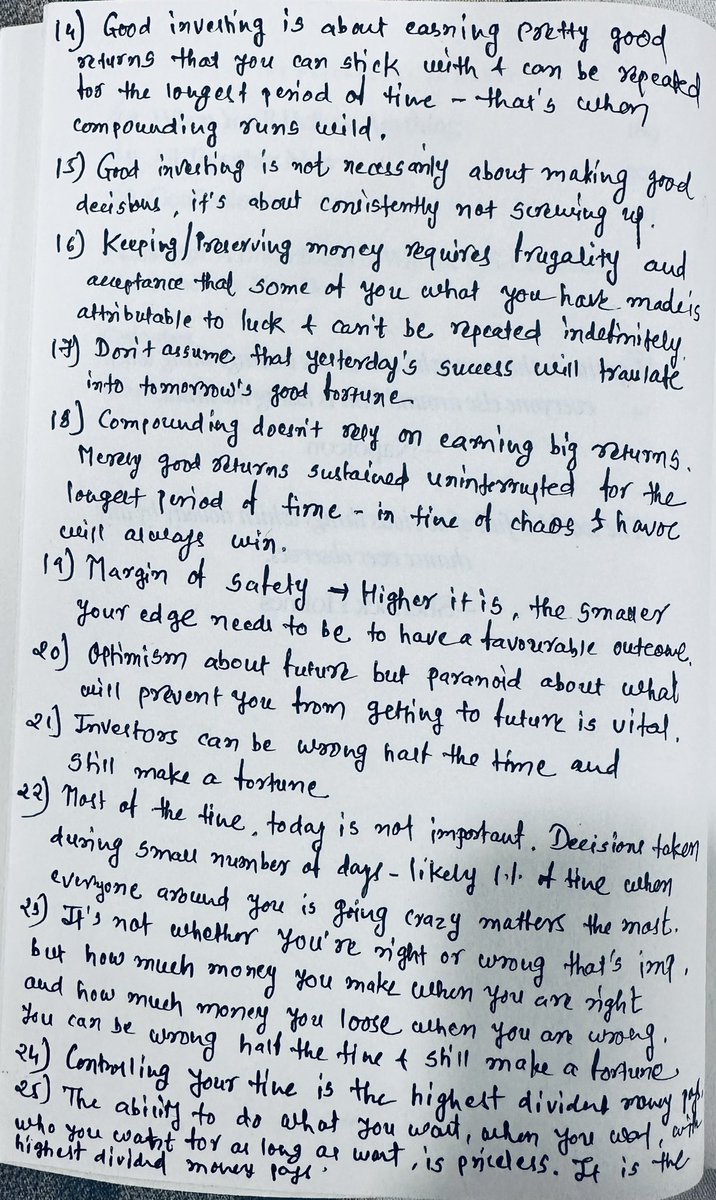 14) Good investing is about earning pretty good
returns that you can stick with & can be repeated
for the longest period of time - that's when
compounding runs wild.
15) Good investing is not necessarily about making good
decisions, it's about consistently not screwing up.
16) Keeping/Preserving money requires frugality and
acceptance that some of you what you have made is
attributable to luck & can't be repeated indefinitely.
17) Don't assume that yesterday's success will translate
into tomorrow's good fortune.
18) Compounding doesn't rely on earning big returns.
Merely good returns sustained uninterrupted for the
longest period of time - in time of chaos & havoc
will always win.
19) Margin of safety → Higher it is, the smaller
your edge needs to be to have a favourable outcome.
20) Optimism about future but paranoid about what
will prevent you from getting to future is vital.
21) Investors can be wrong half the time and
still make a fortune
22) Most of the time, today is not important. Decisions taken
during small number of days - likely 1% of time when
everyone around you is going crazy matters the most.
23) It's not whether you're right or wrong that's imp,
but how much money you make when you are right
and how much money you loose when you are wrong.
You can be wrong half the time & still make a fortune
24) Controlling your time is the highest dividend money pays.
25) The ability to do what you want, when you want, with
who you want for as long as want, is priceless. It is the
highest dividend money pays.